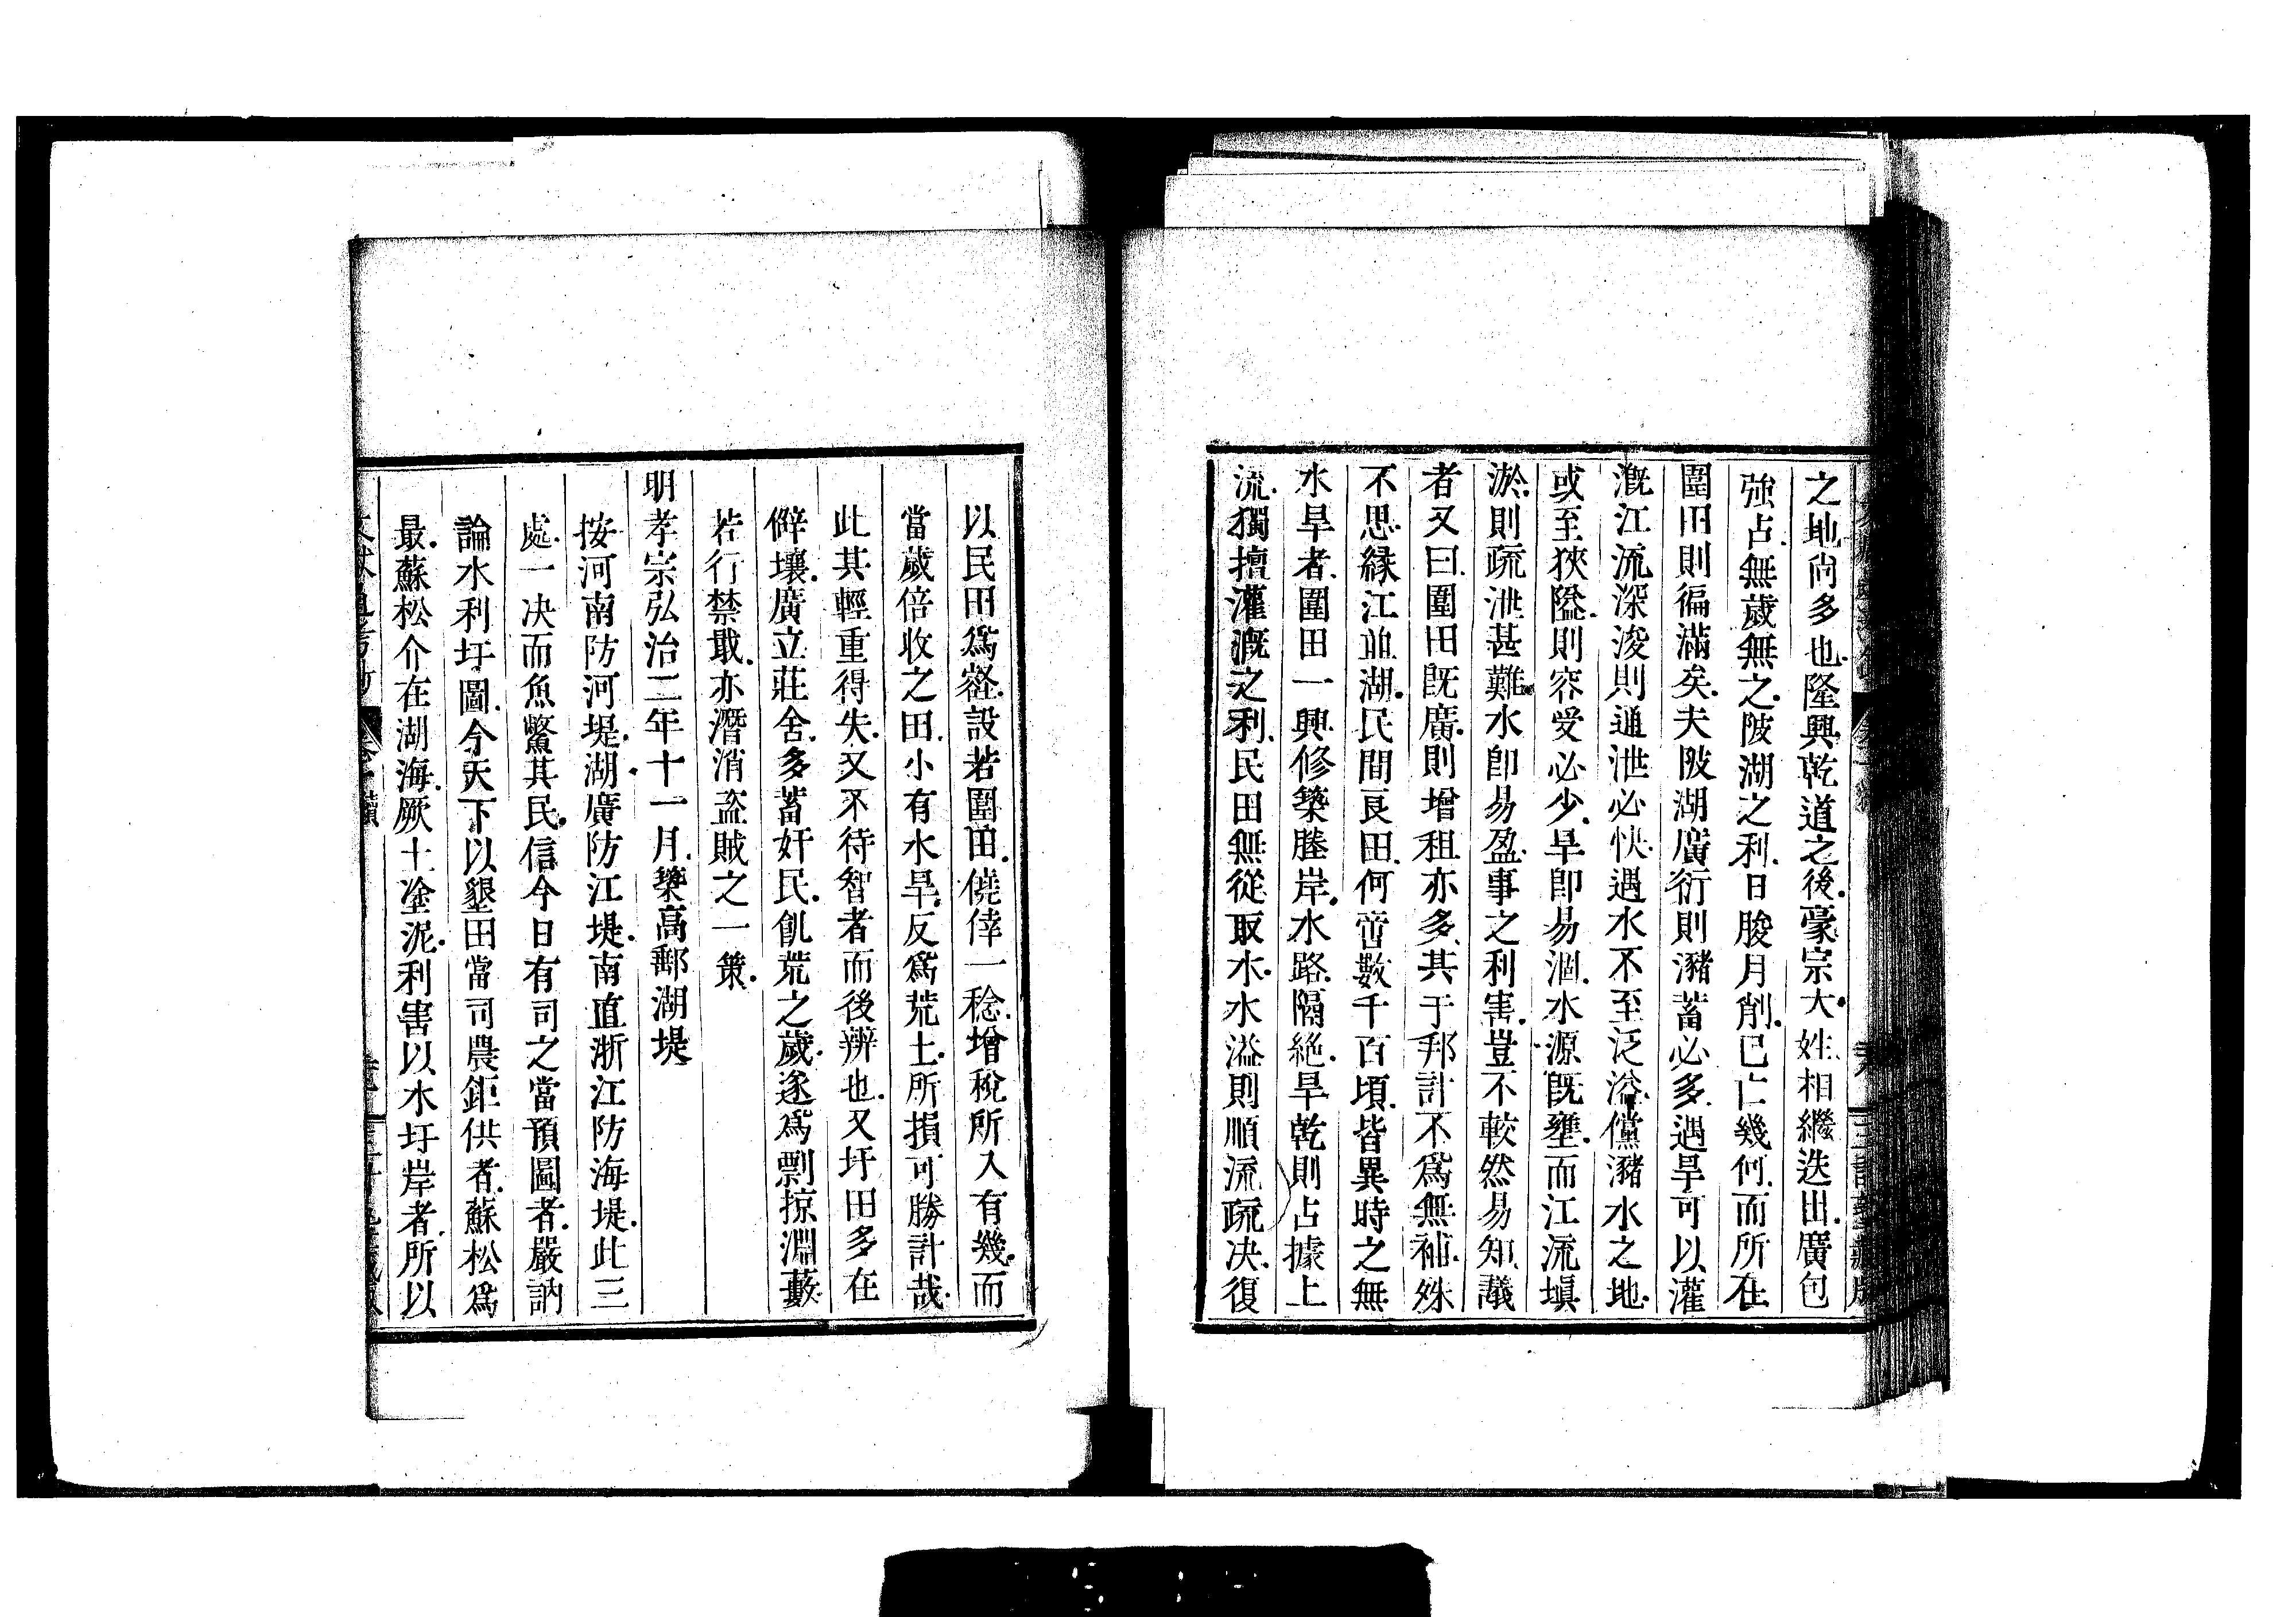 之地尚多也隆興乾道之後豪宗大姓相繼迭出廣包
強占無歲無之陂湖之利日朘月削已亡幾何而所在
圍田則徧滿矣夫陂湖廣衍則瀦蓄必多遇旱可以灌
漑江流深浚則通泄必快遇水不至泛溢儻瀦水之地
或至狹隘則容受必少旱卽易涸水源旣壅而江流塡
淤則疏泄甚難水卽易盈事之利害豈不較然易知議
者又曰圍田旣廣則增租亦多其于邦計不爲無補殊
不思緣江並湖民間良田何啻數千百頃皆異時之無
水旱者圍田一興修築塍岸水路隔絶旱乾則占據上
流獨擅灌漑之利民田無從取水水溢則順流疏决復
以民田爲壑設若圍田僥倖一稔增稅所入有幾而
當歲倍收之田小有水旱反爲荒土所損可勝計哉
此其輕重得失又不待智者而後辨也又圩田多在
僻壤廣立莊舍多蓄奸民飢荒之歲遂爲剽掠淵藪
若行禁戢亦潛消盜賊之一策
明孝宗弘治二年十一月築高郵湖堤
按河南防河堤湖廣防江堤南直浙江防海堤此三
處一决而魚鱉其民信今日有司之當預圖者嚴訥
論水利圩圖今天下以墾田當司農鉅供者蘇松爲
最蘇松介在湖海厥土塗泥利害以水圩岸者所以